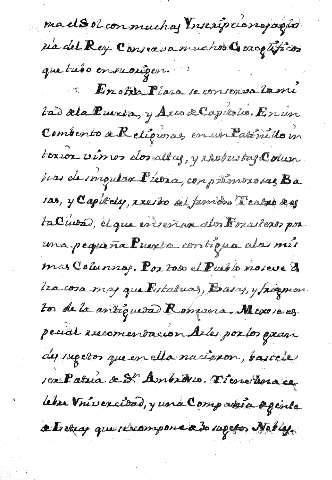 ma el Sol con muchas Ynscripciones a glo
ria del Rey. Conserva muchos Geroglificos
que tubo en su origen.
En otra Plaza se conserva la mi
tad de la Puerta, y Arco de Capitolio. En un
Combento de Religiosas, en un Patinillo in
terior vimos dos altas, y robustas Colum
nas de singular Piedra, con primorosas Ba
sas, y Capiteles, resto del famoso Teatro de es
ta Ciudad, el que enseñan a los Forasteros por
una pequeña Puerta contigua a las mis
mas Columnas. Por todo el Pueblo no se ve o
tra cosa mas que Estatuas, Basas, y fragmen
tos de la antiguedad Romana. Merece es
pecial recomendacion Arles por los gran
des sugetos que en ella nacieron, baste le
ser Patria de Sn. Ambrosio. Tiene una ce
lebre Vniversidad, y una Compañia de gente
de Letras que se compone de 30 sugetos Nobles,